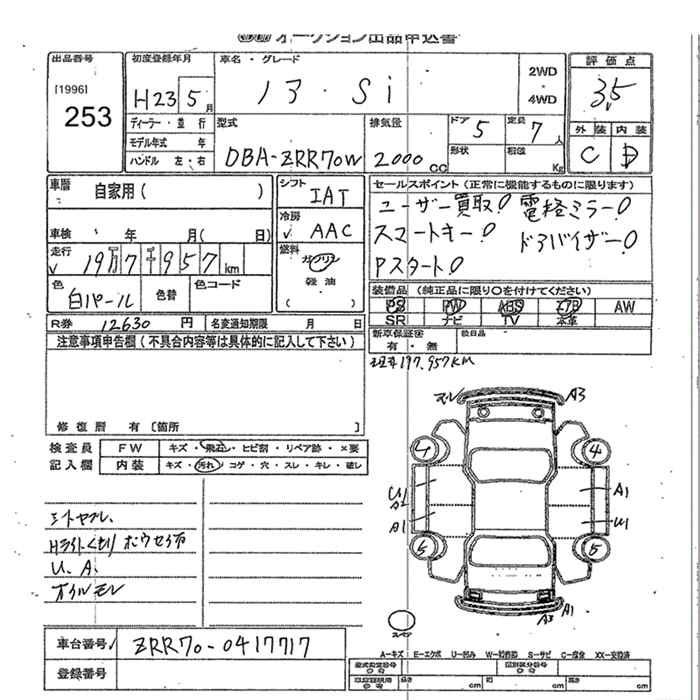 オークション出品申込書
出品番号 初度登録年月 車名・グレード 評価点
[1996] 253 H23 5月 ノア・Si 2WD・4WD 3.5
ディーラー・並行 型式 排気量 ドア 5 定員 7人 外装 内装
モデル年式 年 形状 積載 Kg
ハンドル 左・右 DBA-ZRR70W 2000cc C D
車暦 自家用( ) シフト IAT セールスポイント(正常に機能するものに限ります)
ユーザー買取! 電格ミラー!
車検 年 月( 日) 冷房 AAC スマートキー! ドアバイザー!
走行 19万7千957km 燃料 ガソリン 軽油 ( ) Pスタート!
色 白パール 色替 色コード 装備品(純正品に限り○を付けてください)
PS PW ABS エアB AW
R券 12630円 名変通知期限 月 日 SR ナビ TV 本革
注意事項申告欄(不具合内容等は具体的に記入して下さい) 新車保証書 有・無 後日品
197,957KM
修復暦 有[箇所 ]
検査員 FW キズ・飛石・ヒビ割・リペア跡・×要
記入欄 内装 キズ・汚れ・コゲ・穴・スレ・キレ・破レ
マル A3
4 4
U1 A1
A2
A1 U1
5 5
シートヤブレ
Hライトくもり
U、A、
オイルモレ
スペア A3 A1
車台番号 ZRR70-0417717
A-キズ E-エクボ U-凹み S-サビ C-腐食 XX-交換済
登録番号
cm cm cm